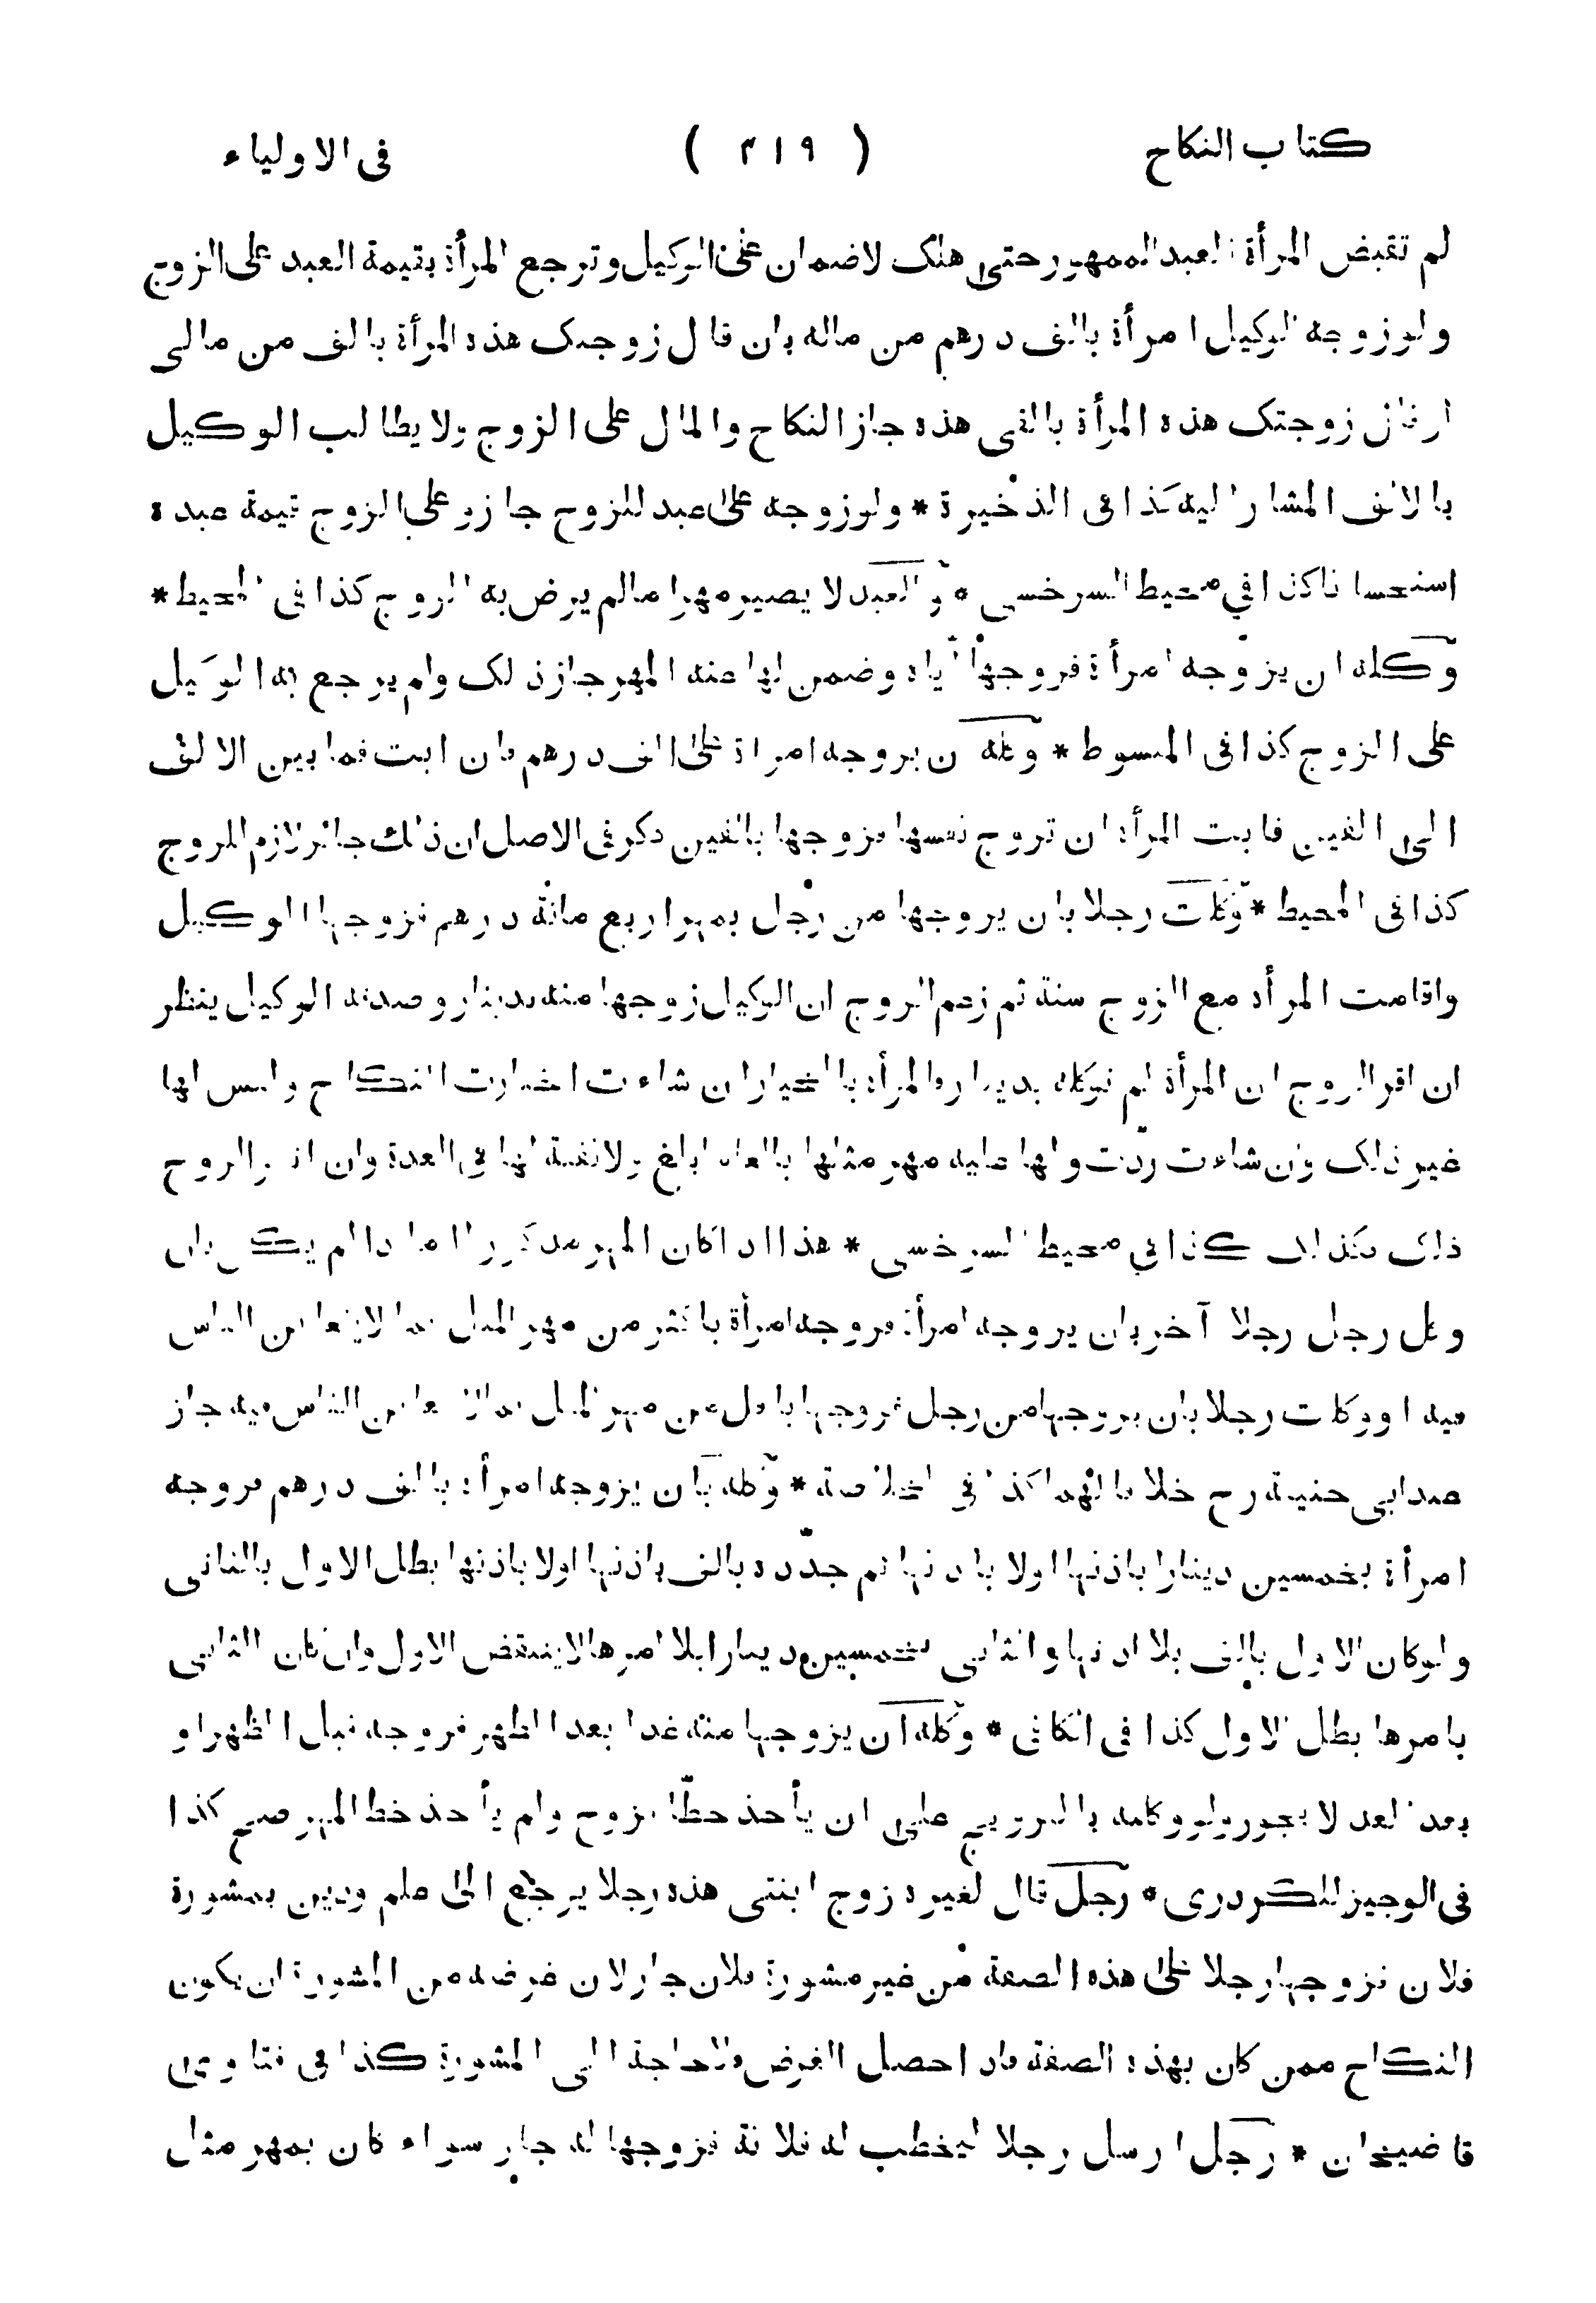 كتاب النكاح ( ٣١٩ ) فى الاولياء
لم تقبض المرأة العبد الممهور حتى هلك لا ضمان على الوكيل وترجع المرأة بقيمة العبد على الزوج
ولو زوجه الوكيل امرأة بالف درهم من ماله بان قال زوجتك هذه المرأة بالف من مالى
او قال زوجتك هذه المرأة بالفى هذه جاز النكاح والمال على الزوج ولا يطالب الوكيل
بالالف المشار اليه كذا فى الذخيرة * ولو زوجه على عبد للزوج جاز وعلى الزوج قيمة عبده
استحسانا كذا في محيط السرخسي * والعبد لا يصير مهرا مالم يرض به الزوج كذا فى المحيط *
وكله ان يزوجه امرأة فزوجها اياه وضمن لها عنه المهر جاز ذلك ولم يرجع به الوكيل
على الزوج كذا فى المبسوط * وكله ان يزوجه امرأة على الف درهم فان ابت فما بين الالف
الى الفين فابت المرأة ان تزوج نفسها فزوجها بالفين ذكر فى الاصل ان ذلك جائز لازم للزوج
كذا فى المحيط * وكلت رجلا بان يزوجها من رجل بمهر اربع مائة درهم فزوجها الوكيل
واقامت المرأة مع الزوج سنة ثم زعم الزوج ان الوكيل زوجها منه بدينار وصدقه الوكيل ينظر
ان اقر الزوج ان المرأة لم توكله بدينار فالمرأة بالخيار ان شاءت اختارت النكاح وليس لها
غير ذلك وان شاءت ردت ولها عليه مهر مثلها بالغا ما بلغ ولا نفقة لها فى العدة وان انكر الزوج
ذلك فكذلك كذا في محيط السرخسي * هذا اذا كان المهر مذكورا اما اذا لم يكن بان
وكل رجل رجلا آخر بان يزوجه امرأة فزوجه امرأة باكثر من مهر المثل بما لا يتغابن الناس
فيه او وكلت رجلا بان يزوجها من رجل فزوجها باقل من مهر المثل بما لا يتغابن الناس فيه جاز
عند ابى حنيفة رح خلافا لهما كذا فى الخلاصة * وكله بان يزوجه امرأة بالف درهم فزوجه
امرأة بخمسين دينارا باذنها اولا باذنها ثم جدده بالف باذنها اولا باذنها بطل الاول بالثانى
ولو كان الاول بالف بلا اذنها والثانى بخمسين دينارا بلا امرها لا ينتقض الاول وان كان الثانى
بامرها بطل الاول كذا فى الكافى * وكله ان يزوجها منه غدا بعد الظهر فزوجه قبل الظهر او
بعد الغد لا يجوز ولو وكله بالتزويج على ان يأخذ خطا فزوج ولم يأخذ خط المهر صح كذا
فى الوجيز للكردرى * رجل قال لغيره زوج ابنتى هذه رجلا يرجع الى علم ودين بمشورة
فلان فزوجها رجلا على هذه الصفة من غير مشورة فلان جاز لان غرضه من المشورة ان يكون
النكاح ممن كان بهذه الصفة فاذا حصل الغرض فلا حاجة الى المشورة كذا فى فتاوى
قاضيخان * رجل ارسل رجلا ليخطب له فلانة فزوجها له جاز سواء كان بمهر مثل